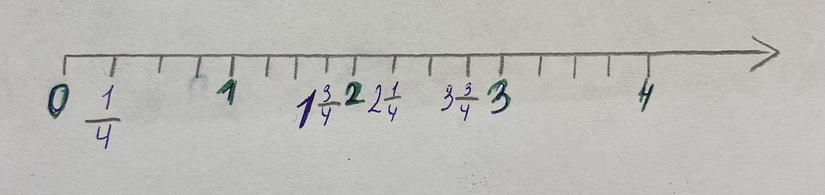 0 1/4 1 1 3/4 2 2 1/4 3 3/4 3 4